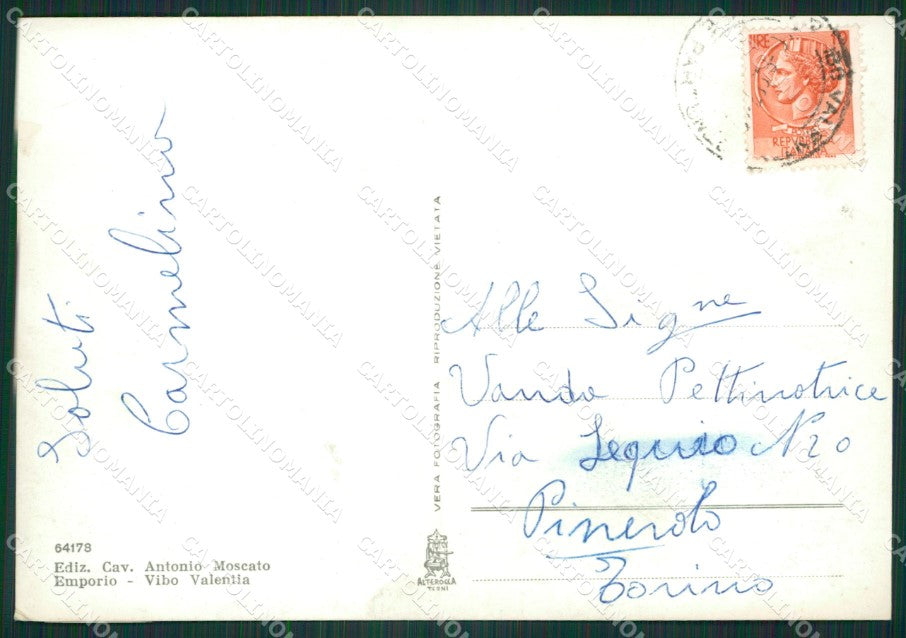 Saluti
Carmelina
64178
Ediz. Cav. Antonio Moscato
Emporio - Vibo Valentia
VERA FOTOGRAFIA RIPRODUZIONE VIETATA
ALTEROCCA
TERNI
LIRE
REPUBBLICA
Alle Signe
Vanda Pettinatrice
Via Lequio N 20
Pinerolo
Torino
CARTOLINOMANIA